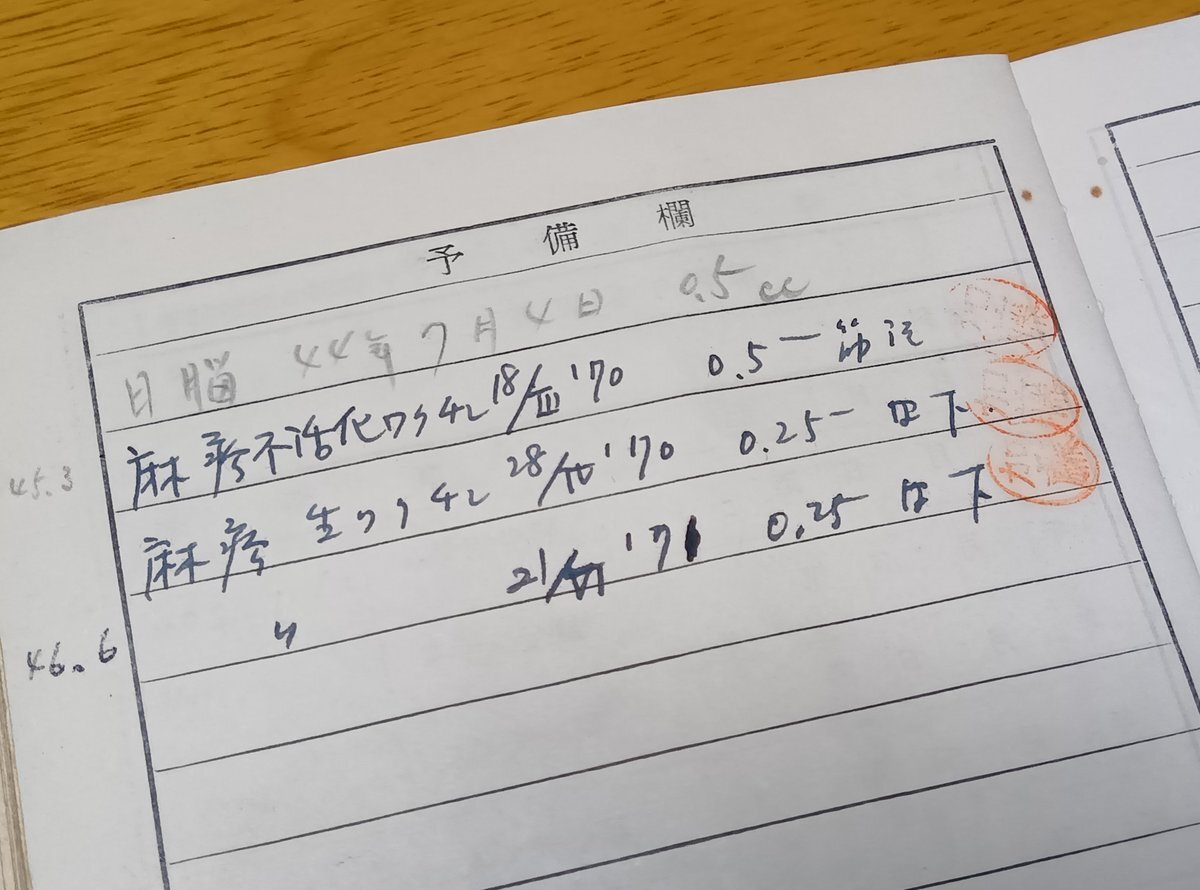 予備欄
日脳 44年7月4日 0.5cc
麻疹不活化ワクチン 18/Ⅲ '70 0.5 一 筋注
45.3
麻疹 生ワクチン 28/Ⅳ '70 0.25 一 皮下
〃 21/Ⅵ '71 0.25 皮下
46.6